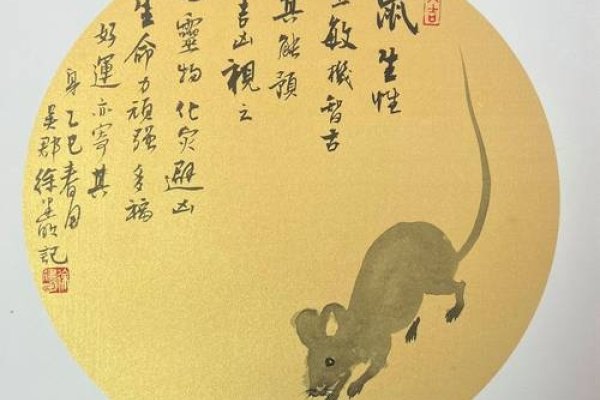 鼠生性
敏機智古
其能預
吉凶視之
靈物化灾避凶
生命力頑強多福
好運亦寄其
身乙巳春月
吳郡徐
記